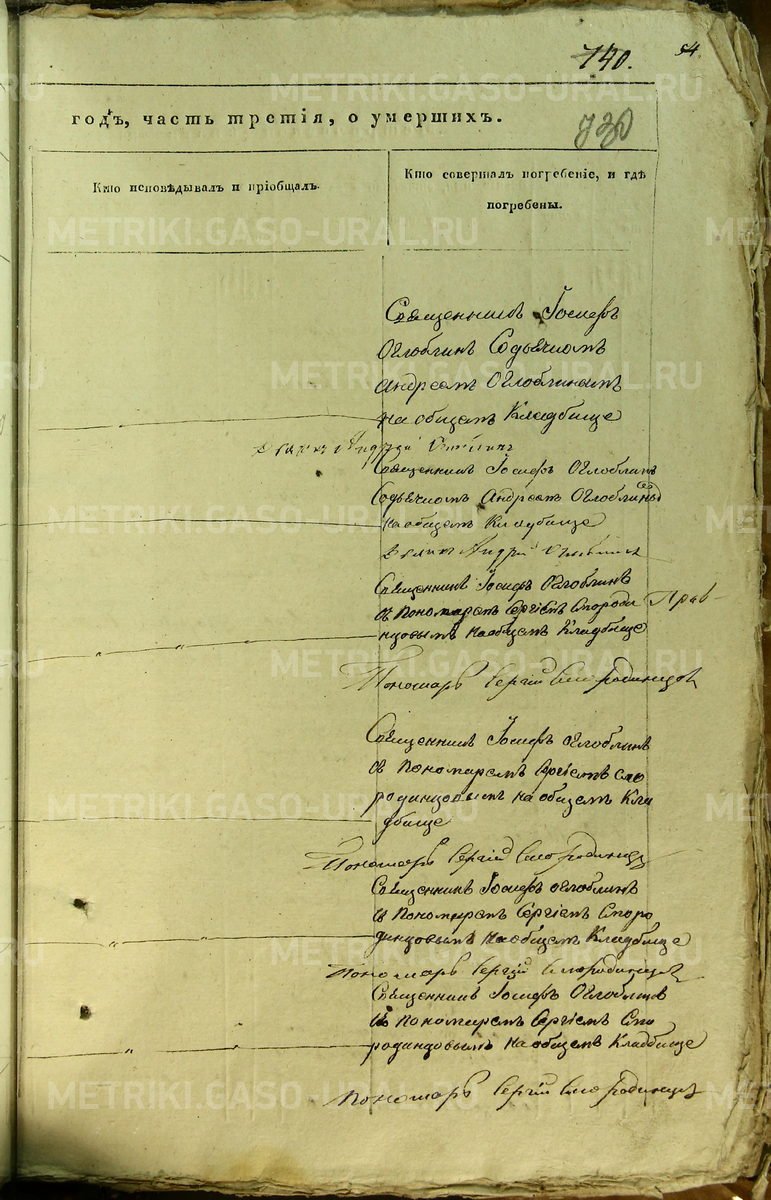 740.
54
730
годъ, часть третія, о умершихъ.
Кто исповѣдывалъ и пріобщалъ.
Кто совершалъ погребеніе, и гдѣ
погребены.
Священникъ Іосифъ
Оглоблинъ Содьячкомъ
Андреемъ Оглоблинымъ
на общемъ Кладбище
Андрей
Священникъ Іосифъ Оглоблинъ
Содьячкомъ Андреемъ Оглоблинымъ
на общемъ Кладбище
Андрей
Священникъ Іосифъ Оглоблинъ
съ Пономаремъ Сергіемъ Смороди
нцовымъ на общемъ Кладбище
Пономарь Сергій Смородинцов
Священникъ Іосифъ Оглоблинъ
съ Пономаремъ Сергіемъ Смо
родинцовымъ на общемъ Кла
дбище
Пономарь Сергій Смородинцов
Священникъ Іосифъ Оглоблинъ
съ Пономаремъ Сергіемъ Сморо
динцовымъ на общемъ Кладбище
Пономарь Сергій Смородинцов
Священникъ Іосифъ Оглоблинъ
съ Пономаремъ Сергіемъ Смо
родинцовымъ на общемъ Кладбище
Пономарь Сергій Смородинцов
METRIKI.GASO-URAL.RU